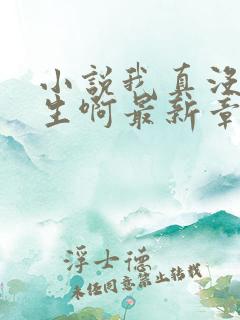 小説我真没
生啊最新章
浮士德
未经同意禁止转载